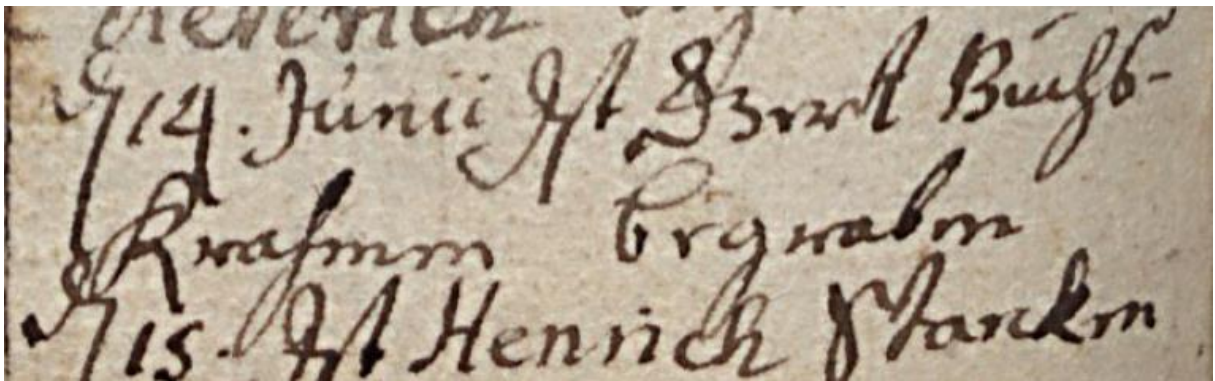 Diederich
d 14. Junii Ist Evert Buchs-
Krahmen begraben
d 15. Ist Henrich Starcken